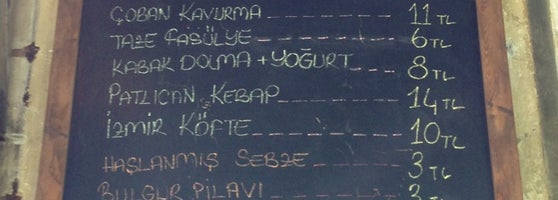 ÇOBAN KAVURMA ------ 11 TL
TAZE FASÜLYE ------ 6 TL
KABAK DOLMA + YOĞURT --- 8 TL
PATLICAN KEBAP ------ 14 TL
İZMİR KÖFTE -------- 10 TL
HAŞLANMIŞ SEBZE ------ 3 TL
BULGUR PİLAVI ------ 3 TL